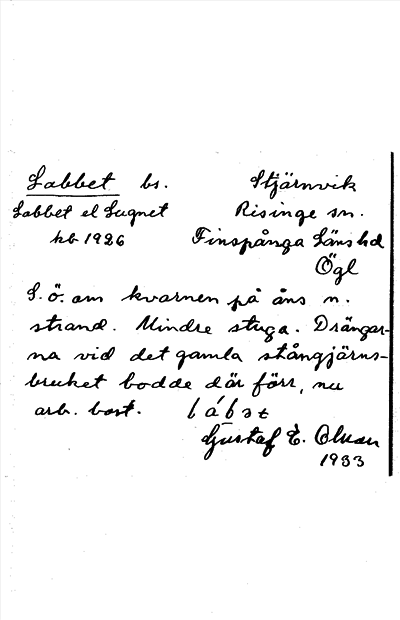 Labbet bs. Stjärnvik
Labbet el Lugnet Risinge sn.
hb 1926 Finspånga Läns hd
Ögl
S. ö. om kvarnen på åns n.
strand. Mindre stuga. Drängar-
na vid det gamla stångjärns-
bruket bodde där förr, nu
arb. bost.
Gustaf E. Olson
1933